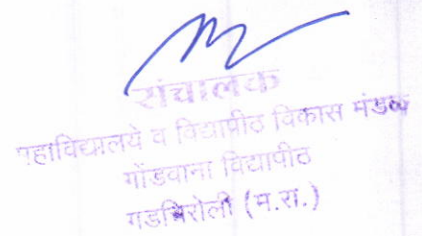 संचालक
महाविद्यालये व विद्यापीठ विकास मंडळ
गोंडवाना विद्यापीठ
गडचिरोली (म.रा.)